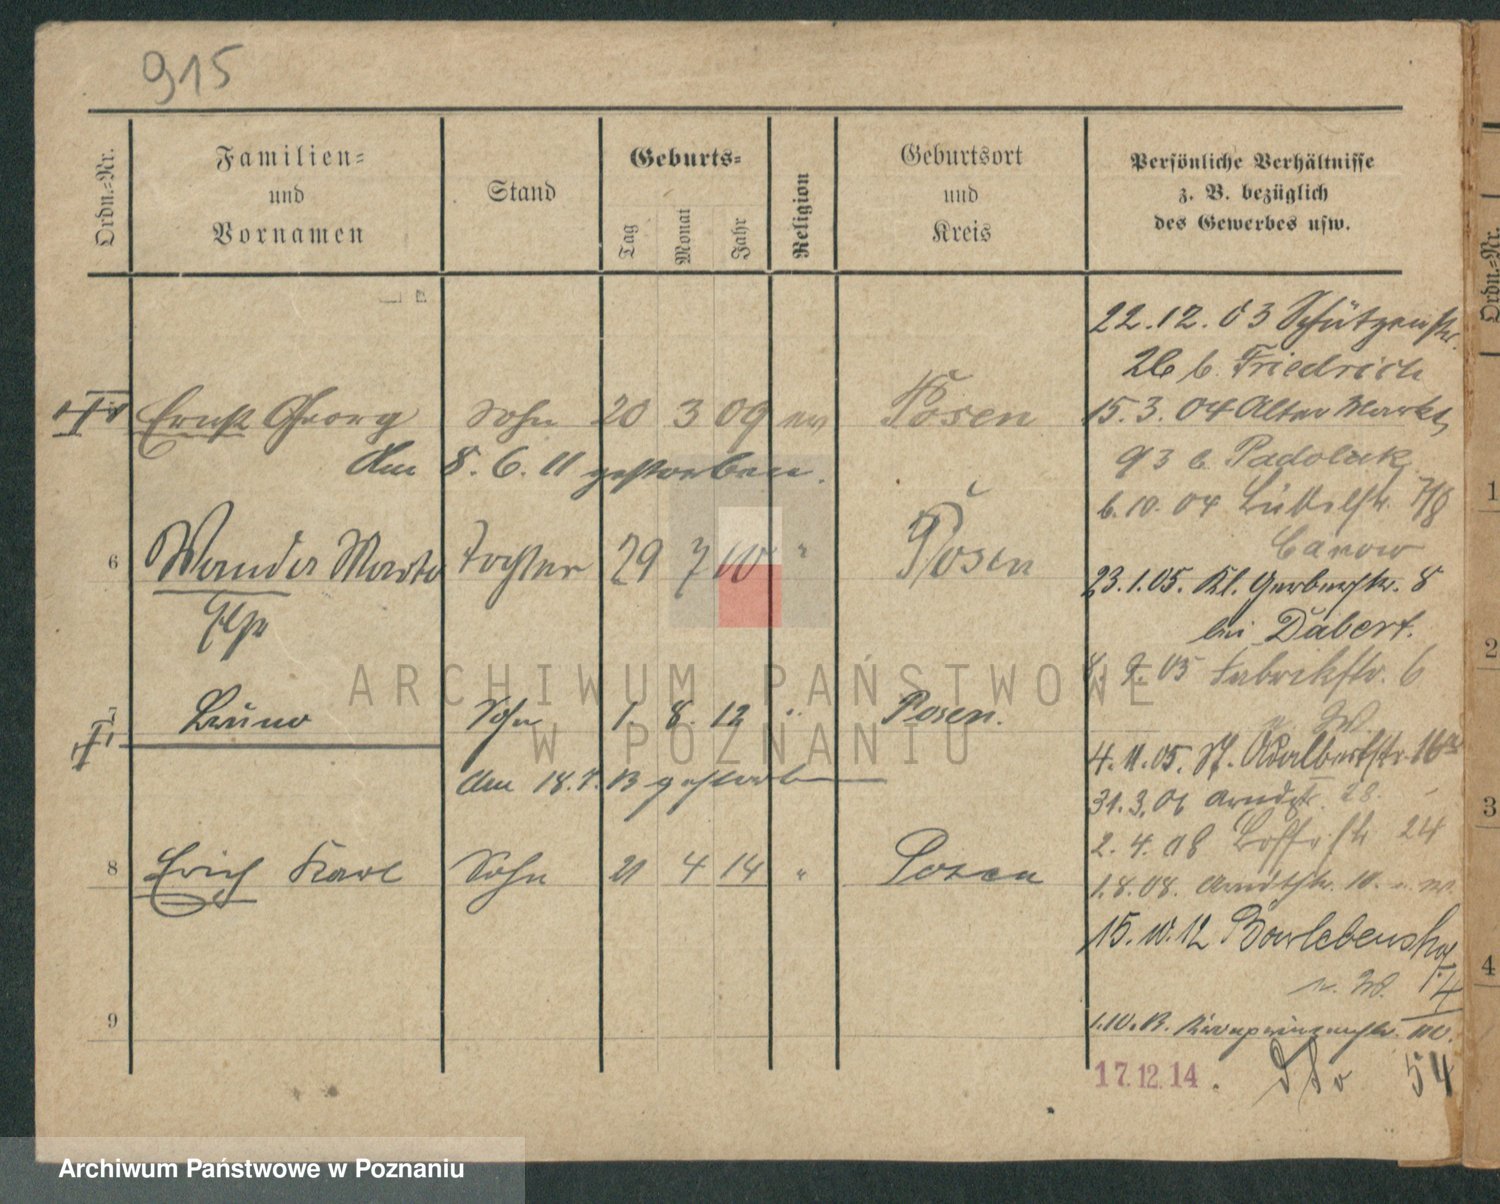 915
Ordn.-Nr.
Familien-
und
Vornamen
Stand
Geburts-
Tag
Monat
Jahr
Religion
Geburtsort
und
Kreis
Persönliche Verhältnisse
z. B. bezüglich
des Gewerbes usw.
22.12.03 Schützenstr.
26 b. Friedrich
Ernst Georg Sohn 20 3 09 ev Posen
15.3.04 Alter Markt
am 8.6.11 gestorben.
93 b.
6.10.04 7/8
6 Wanda Marta Tochter 29 7 10 " Posen
Else
23.1.05. Kl. Gerberstr. 8
bei Dabert.
05 Fabrikstr. 6
n. W.
Bruno Sohn 1. 8. 12 " Posen.
4.11.05. St. Adalbertstr. 16
am 18.7.13 gestorb
31.3.06 28.
2.4.08 24
8 Erich Karl Sohn 21 4 14 " Posen
1.8.08. Arndtstr. 10. n. W.
15.10.12
n. W.
9
1.10.13. Kronprinzenstr.
17.12.14. dto 54
Ordn.-Nr.
1
2
3
4
ARCHIWUM PAŃSTWOWE
W POZNANIU
Archiwum Państwowe w Poznaniu